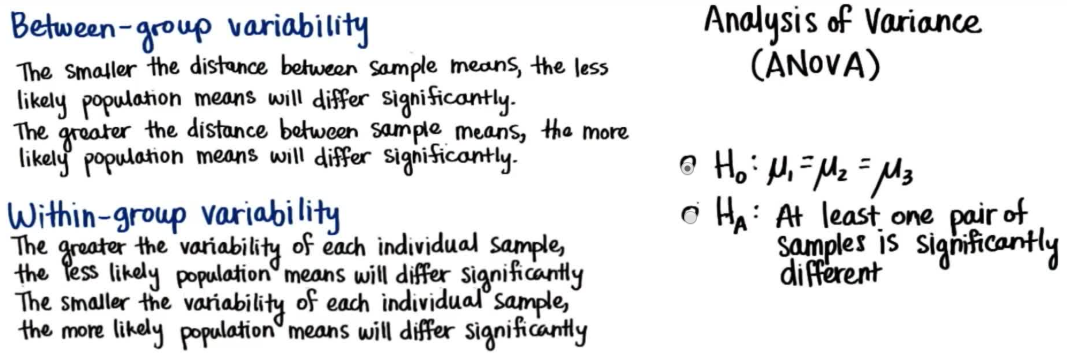 Between-group variability
The smaller the distance between sample means, the less
likely population means will differ significantly.
The greater the distance between sample means, the more
likely population means will differ significantly.
Within-group variability
The greater the variability of each individual sample,
the less likely population means will differ significantly
The smaller the variability of each individual sample,
the more likely population means will differ significantly
Analysis of Variance
(ANOVA)
H₀: μ₁ = μ₂ = μ₃
H_A: At least one pair of
samples is significantly
different